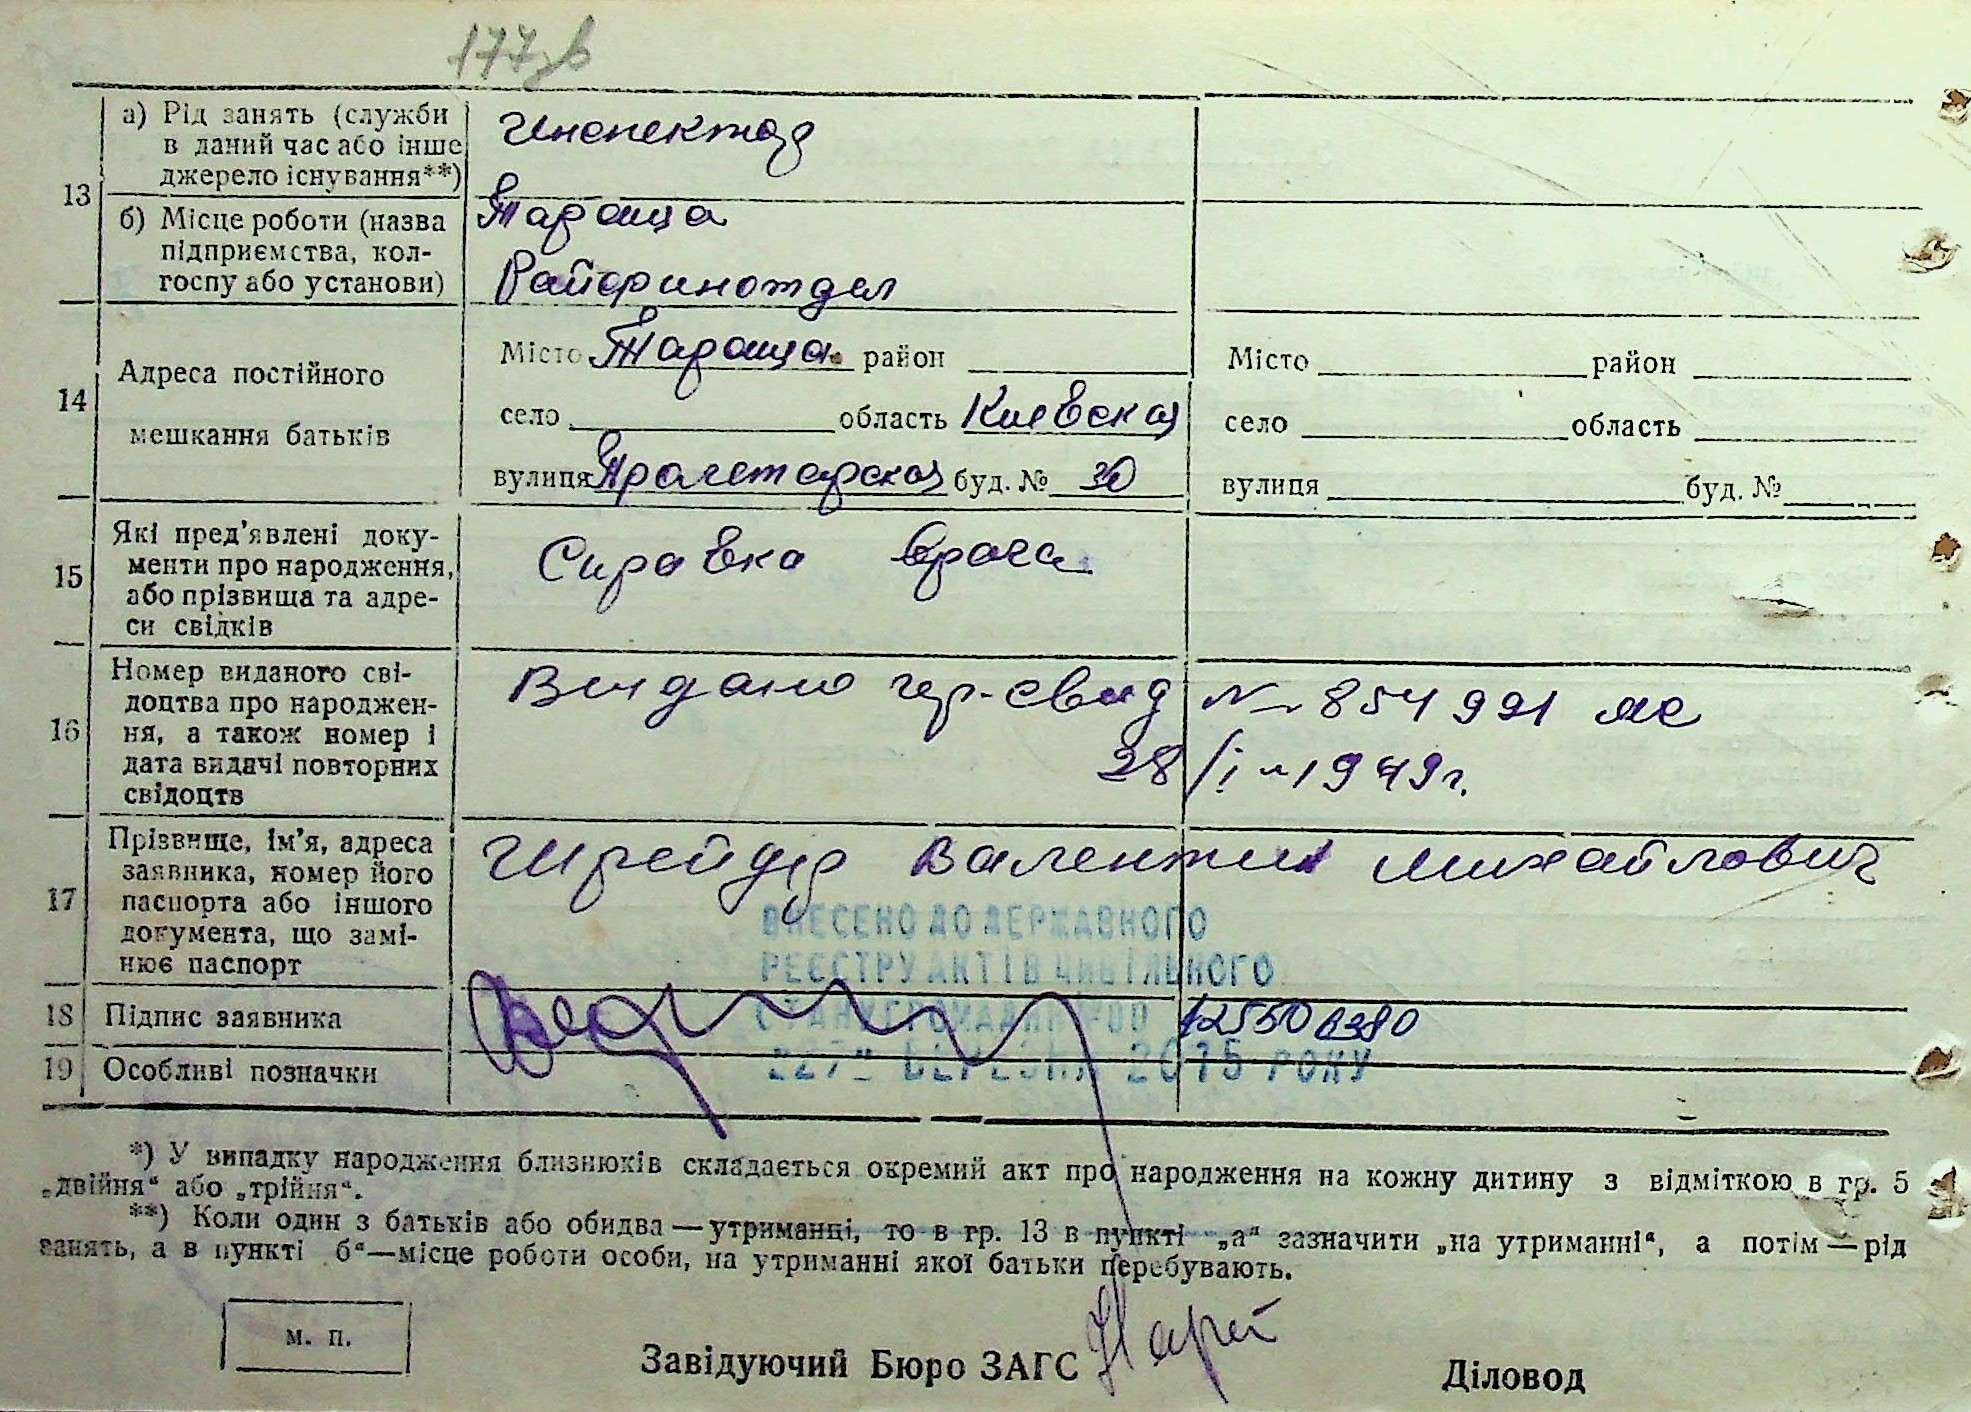 177зв
13
а) Рід занять (служби
в даний час або інше
джерело існування**)
Инспектор
б) Місце роботи (назва
підприємства, кол-
госпу або установи)
Тараща
Райфинотдел
14
Адреса постійного
мешкання батьків
Місто Тараща район
село область Киевская
вулиця Пролетарская буд. № 30
Місто район
село область
вулиця буд. №
15
Які пред'явлені доку-
менти про народження,
або прізвища та адре-
си свідків
Справка врача
16
Номер виданого сві-
доцтва про народжен-
ня, а також номер і
дата видачі повторних
свідоцтв
Видано свид № 854991
28/I-1949г.
17
Прізвище, ім'я, адреса
заявника, номер його
паспорта або іншого
документа, що замі-
нює паспорт
Шрейдер Валентин Михайлович
ВНЕСЕНО ДО ДЕРЖАВНОГО
РЕЄСТРУ АКТІВ ЦИВІЛЬНОГО
СТАНУ ГРОМАДЯН
2015 РОКУ
18
Підпис заявника
19
Особливі позначки
*) У випадку народження близнюків складається окремий акт про народження на кожну дитину з відміткою в гр. 5
„двійня“ або „трійня“.
**) Коли один з батьків або обидва — утриманці, то в гр. 13 в пункті „а“ зазначити „на утриманні“, а потім — рід
занять, а в пункті б“ — місце роботи особи, на утриманні якої батьки перебувають.
м. п.
Завідуючий Бюро ЗАГС
Діловод